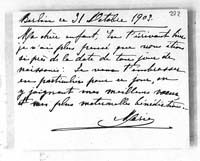 31 Octobre 1902.
Ma chère enfant, En t'écrivant hier
je n'ai plus pensé que nous étions
si près de la date de ton jour de
naissance. Je viens t'embrasser
en particulier pour ce jour, en
y joignant mes meilleurs vœux
et mes plus maternelles bénédictions.
Marie